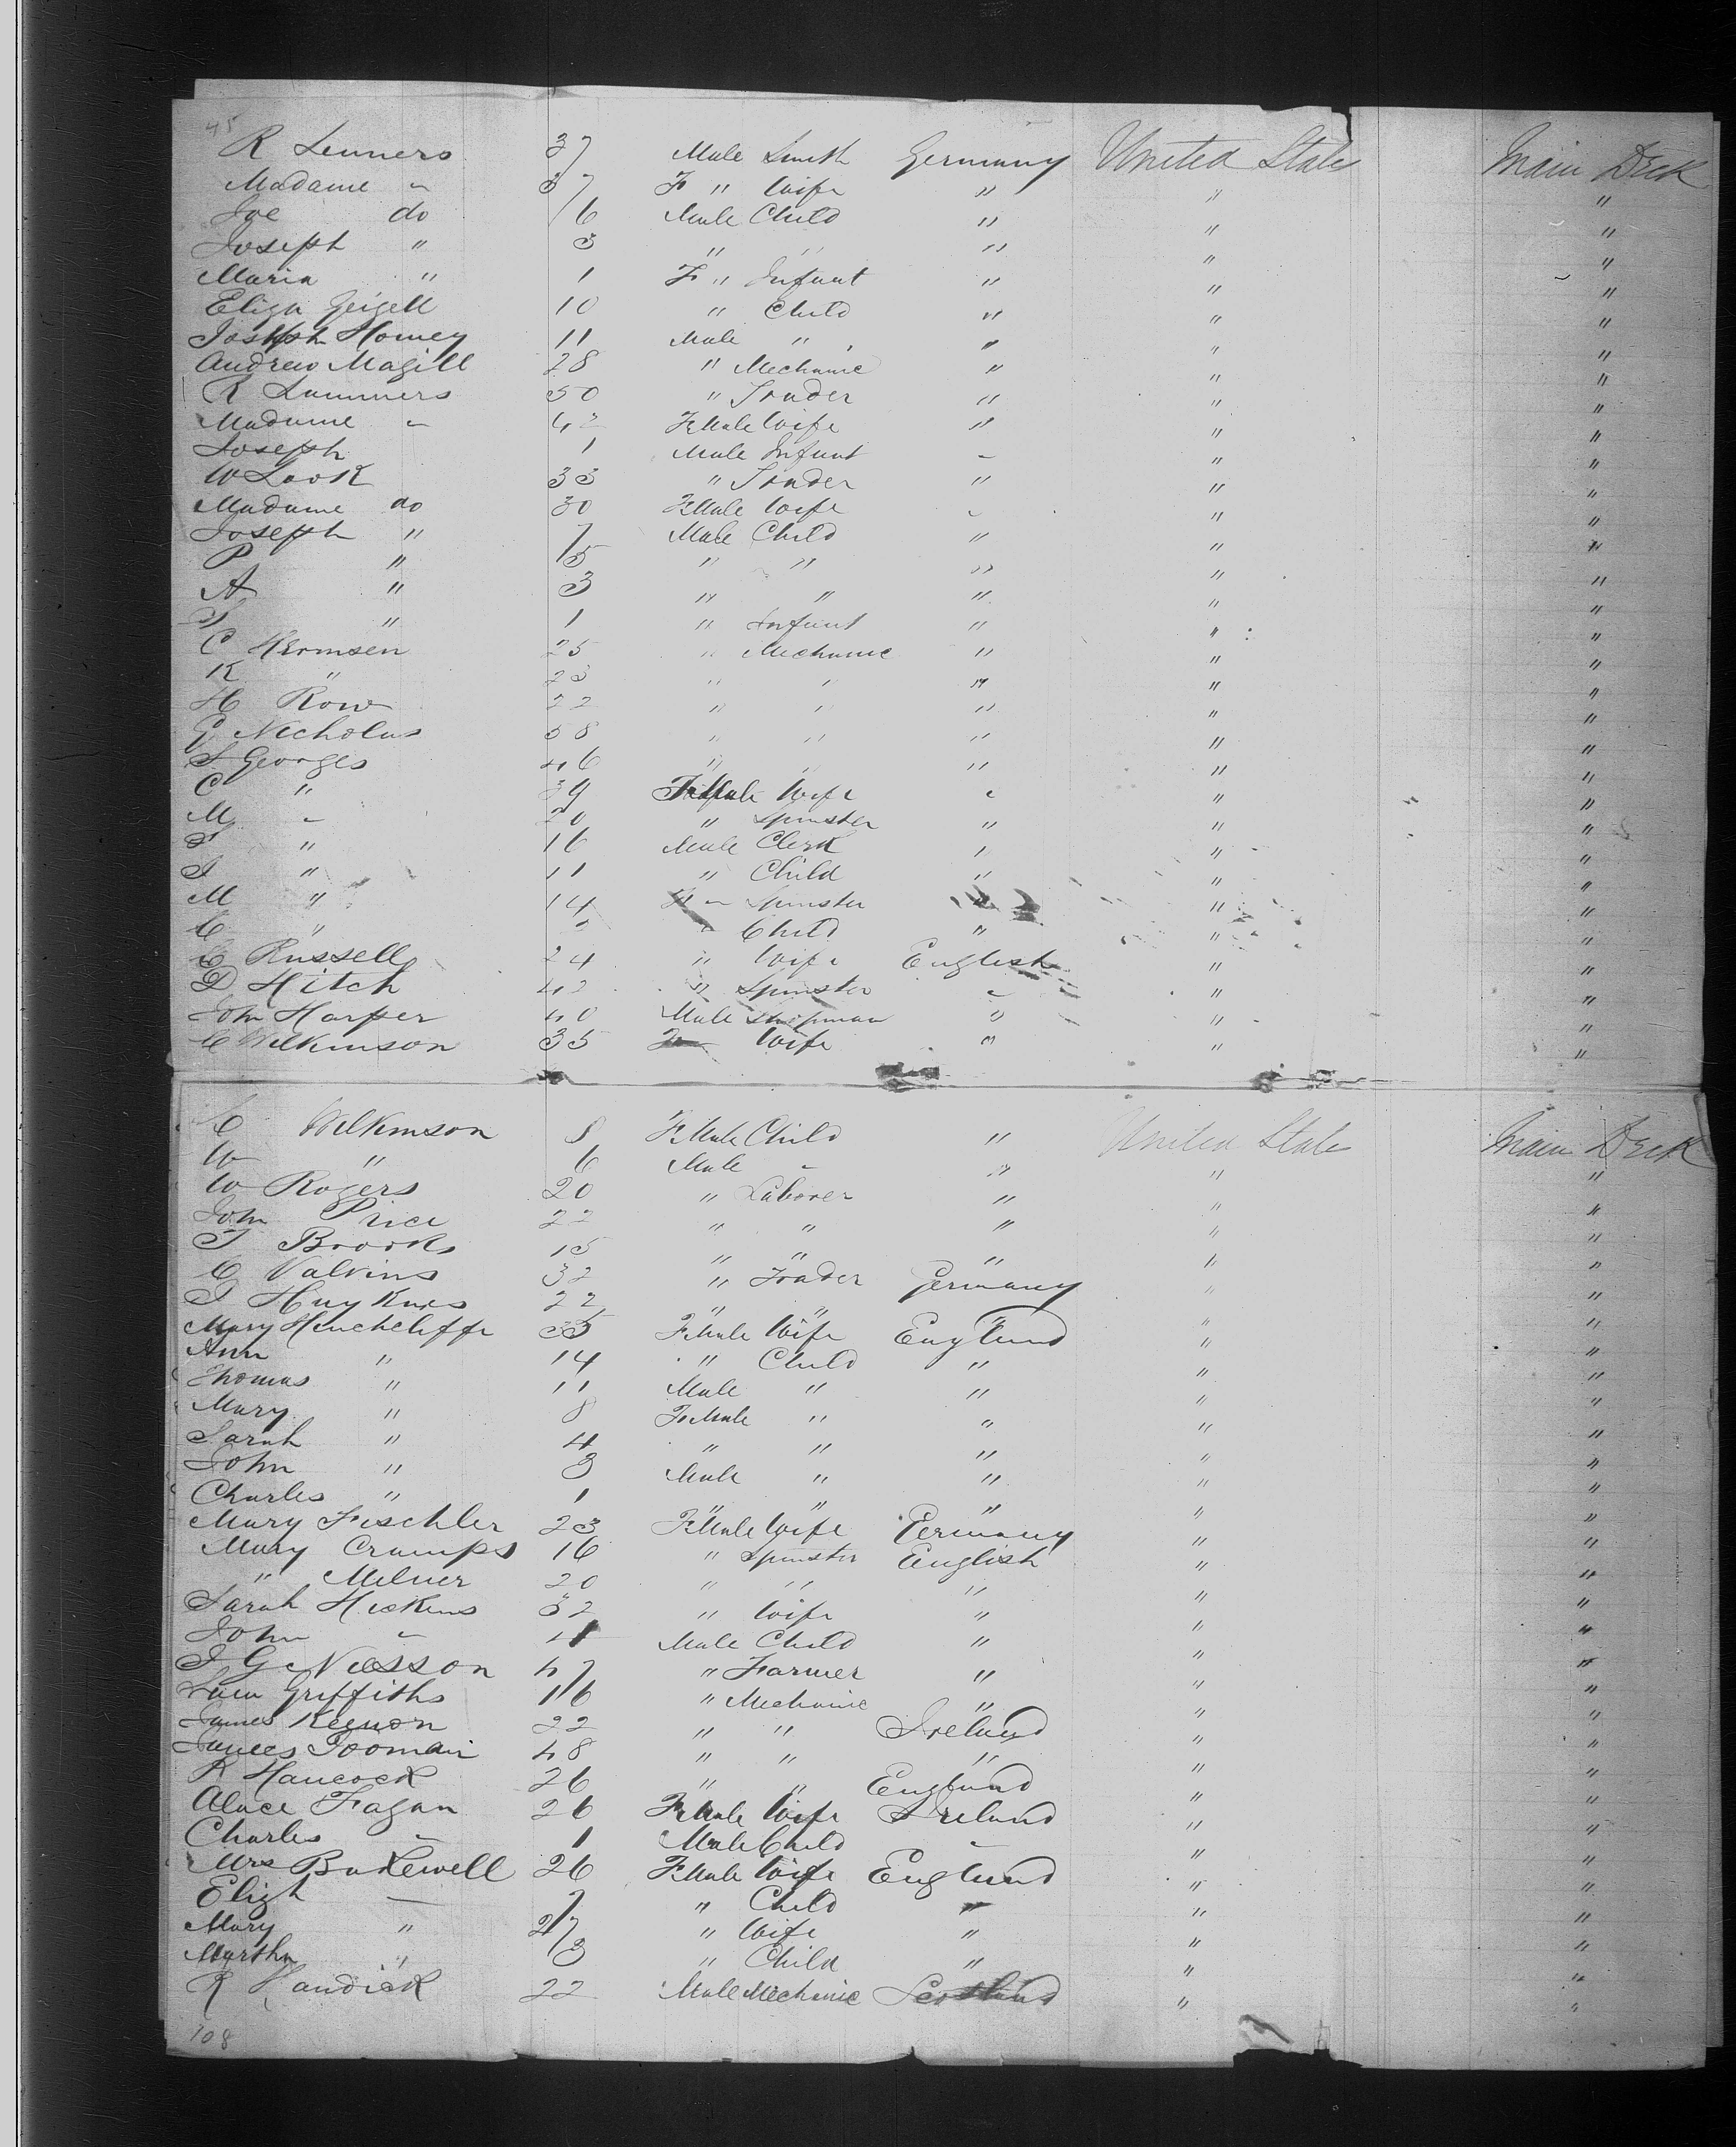 45
R Lenners 37 Male Smith Germany United State Main Deck
Madame " 37 F " Wife " " "
Joe do 6 Male Child " " "
Joseph " 3 " " " " "
Maria " 1 F " Infant " " "
Eliza Geigell 10 " Child " " "
Joseph Homey 11 Male " " " "
Andrew Magill 28 " Mechanic " " "
R Lummers 50 " Trader " " "
Madame " 42 FMale Wife " " "
Joseph 1 Male Infant " " "
W Look 33 " Trader " " "
Madame do 30 FMale Wife " " "
Joseph " 7 Male Child " " "
P " 5 " " " " "
A " 3 " " " " "
" 1 " Infant " " "
C Hermsen 25 " Mechanic " " "
K " 23 " " " " "
H Row 22 " " " " "
G Nicholas 58 " " " " "
S Georges 46 " " " " "
C " 39 FeMale Wife " " "
M " 20 " Spinster " " "
" 16 Male Clerk " " "
J " 11 " Child " " "
M " 14 F " Spinster " " "
C " " Child " " "
C Russell 24 " Wife English " "
D Hitch 42 " Spinster " " "
John Harper 40 Male Shipman " " "
C Wilkinson 35 Fe Wife " " "
C Wilkinson 8 FMale Child " United State Main Deck
W " 6 Male " " " "
W Rogers 20 " Laborer " " "
John Price 22 " " " " "
T Brooks 15 " " " " "
C Valvins 32 " Trader Germany " "
J Huyknes 22 " " " " "
Mary Hinchcliffe 35 FMale Wife England " "
Ann " 14 " Child " " "
Thomas " 11 Male " " " "
Mary " 8 FeMale " " " "
Sarah " 4 " " " " "
John " 3 Male " " " "
Charles " 1 " " " " "
Mary Fischler 23 FMale Wife Germany " "
Mary Cramps 16 " Spinster English " "
" Milner 20 " " " " "
Sarah Hickens 32 " Wife " " "
John " Male Child " " "
J G Nilsson 47 " Farmer " " "
Griffiths 16 " Mechanic " " "
James Keenon 22 " " Ireland " "
James Tooman 48 " " " " "
R Hancock 26 " " England " "
Alace Fagan 26 FeMale Wife Ireland " "
Charles " 1 Male Child " " "
Mrs Bakewell 26 FMale Wife England " "
Elizh 7 " Child " " "
Mary " 27 " Wife " " "
Martha " 3 " Child " " "
R Vandick 22 Male Mechanic Scotland " "
108